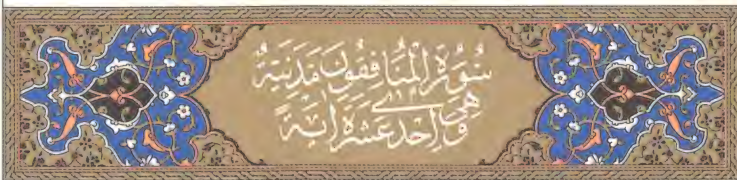 سُورَةُ الْمُنَافِقُونَ مَدَنِيَّةٌ
وَهِيَ اِحْدٰى عَشَرَةَ اٰيَةً